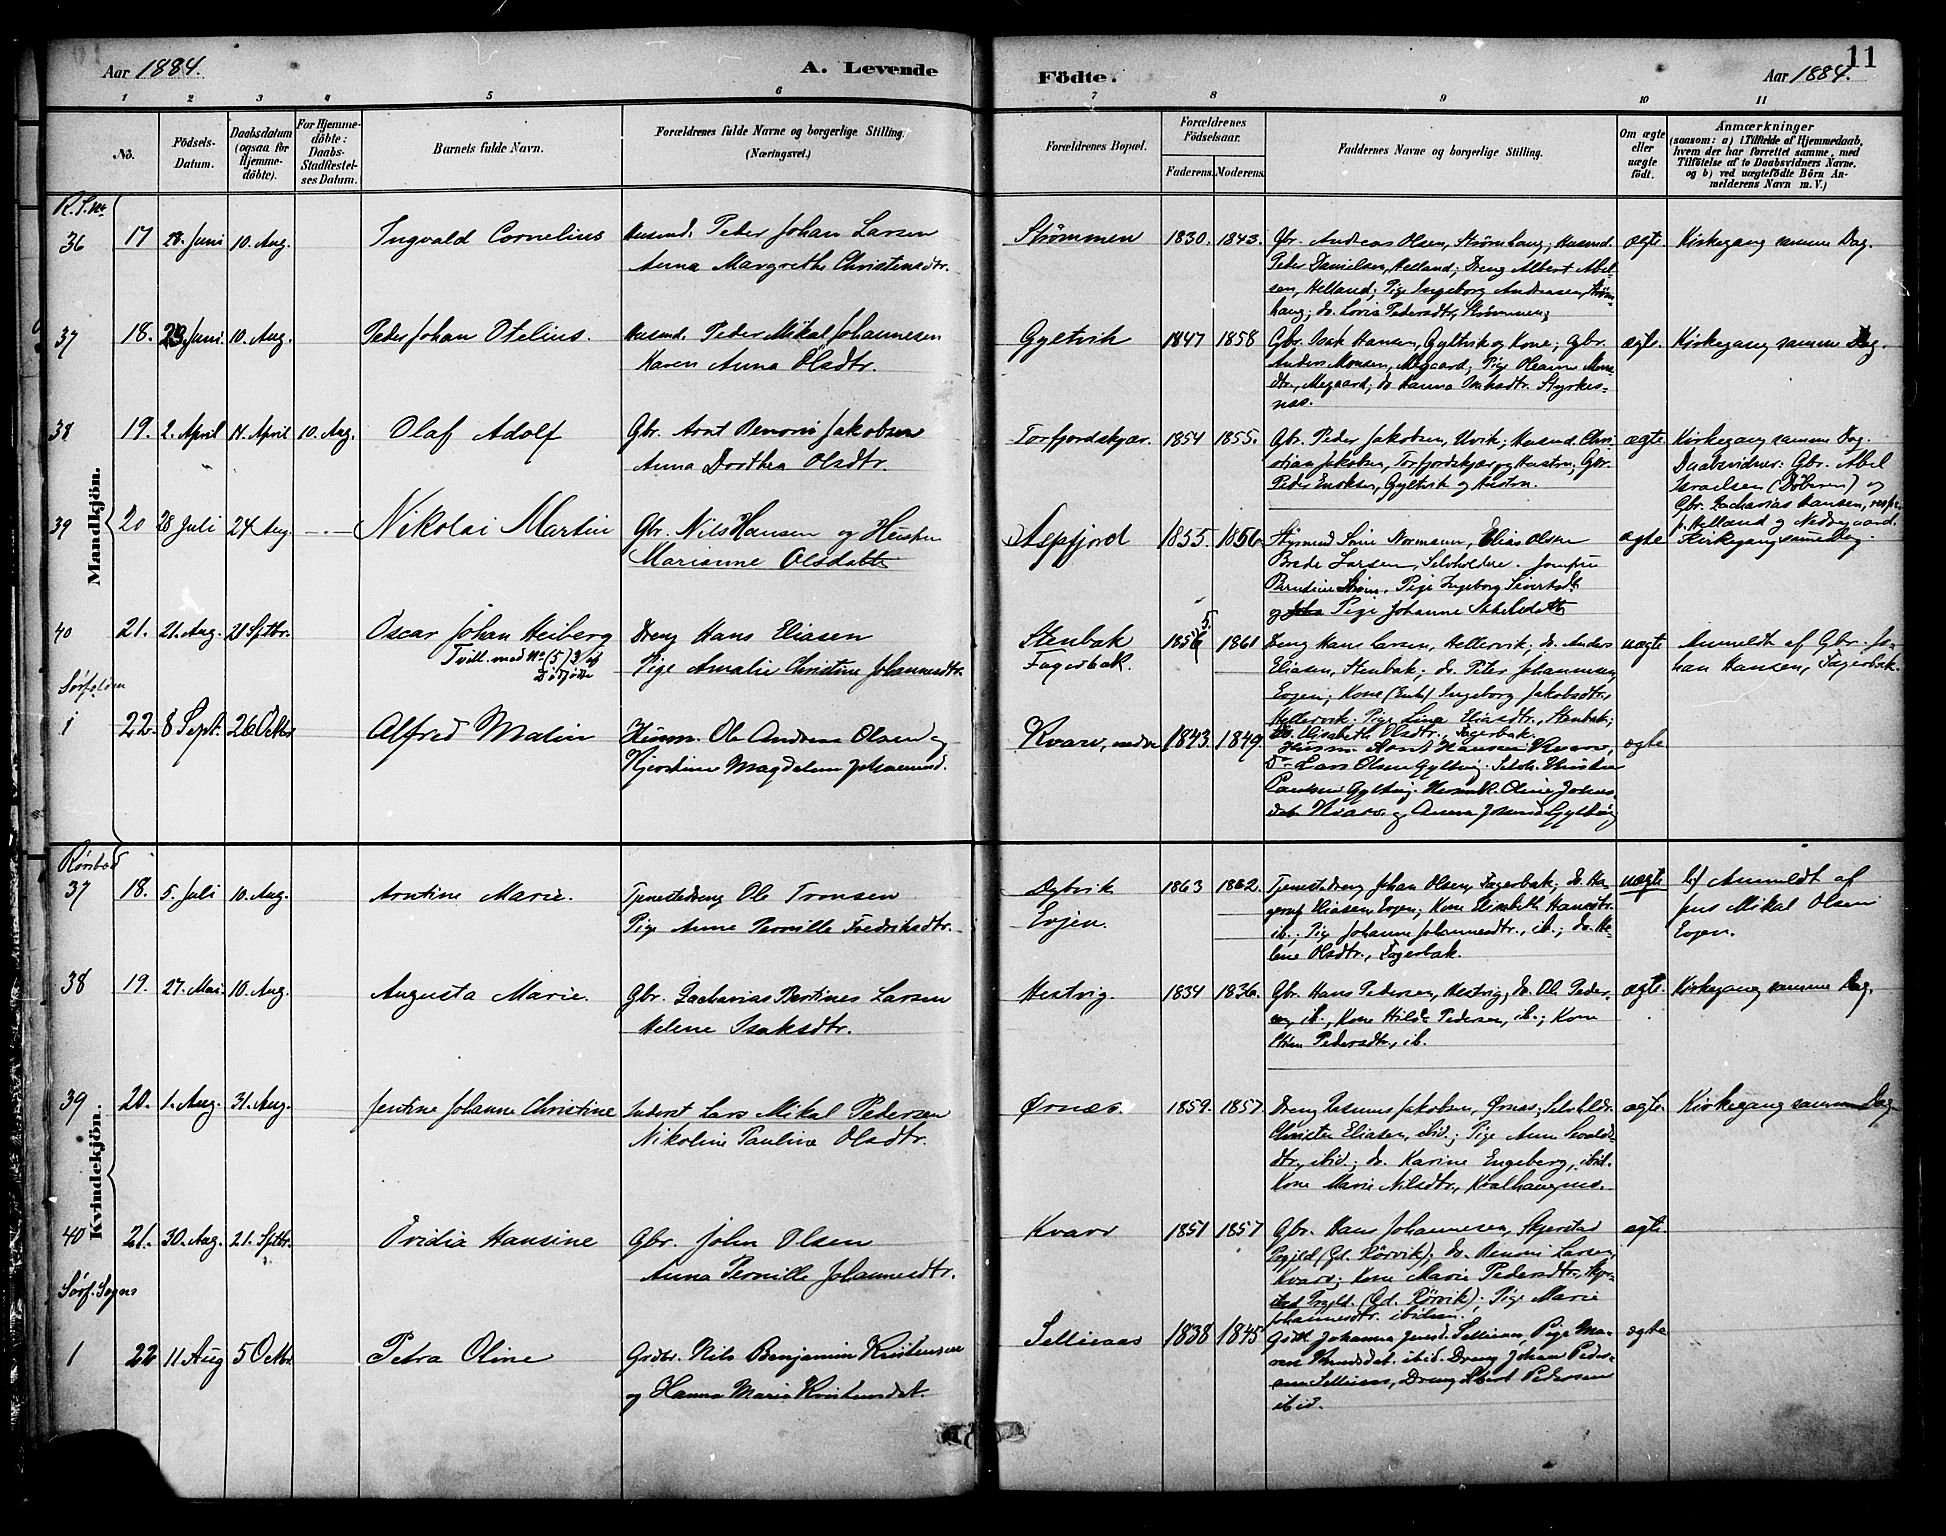 11
Aar 1884.
A. Levende
Födte.
Aar 1884.
1 2 3 4 5 6 7 8 9 10 11
No.
Födsels-Datum.
Daabsdatum (ogsaa for Hjemmedöbte).
For Hjemmedöbte: Daabs-Stadfæstelses Datum.
Barnets fulde Navn.
Forældrenes fulde Navne og borgerlige Stilling.
(Næringsvei.)
Forældrenes Bopæl.
Forældrenes Födselsaar.
Faderens. Moderens.
Faddernes Navne og borgerlige Stilling.
Om ægte eller uægte födt.
Anmærkninger
(saasom: a) i Tilfælde af Hjemmedaab, hvem der har forrettet samme, med Tilföielse af to Daabsvidners Navne, og b) ved uægtefödte Börn Anmelderens Navn m. V.)
Mandkjön.
36 17 10. Aug. Ingvald Cornelius
Husmd. Peder Johan Larsen
Anna Margrethe Christensdtr.
Strömmen 1830. 1843.
Gbr. Andreas Olsen, Strömhaug; Husmd.
Peder Danielsen, Helland; Dreng Albert Abel-
sen, Helland; Pige Ingeborg Andreasen, Ström-
haug; do. Lovise Pedersdtr, Strömmen;
ægte Kirkegang samme Dag.
37 18. 23 Juni. 10. Aug. Peder Johan Otelius.
Husmd. Peder Mikal Johannesen
Karen Anna Olsdtr.
Gyltvik 1847 1858
Gbr. Isak Hansen, Gyltvik og Kone; Gbr.
Anders Monsen, Megaard; Pige Oleanna Mons-
dtr, Megaard; do. Hanna Isaksdtr. Styrkes-
næs.
ægte. Kirkegang samme Dag.
38 19. 2. April 14. April 10. Aug. Olaf Adolf
Gbr. Arnt Benoni Jakobsen
Anna Dorthea Olsdtr.
Torfjordskjær. 1854 1855.
Gbr. Peder Jakobsen, Urvik; Husmd. Chri-
stian Jakobsen, Torfjordskjær og Hustru; Gbr.
Peder Enoksen, Gyltvik og Hustru.
ægte Kirkegang samme Dag.
Daabsvidner: Gbr. Abel
Israelsen (Döberen) og
Gbr. Zacharias Hansen, resp.
p. Helland og Nedregaard.
39 20 28 Juli 24 Aug. Nikolai Martin
Gbr. Nils Hansen og Hustru
Marianne Olsdatter
Aspfjord 1855. 1856
Normann, Elias Olsen
Brede Larsen, Selvholdere. Jomfru
Berntine Ström, Pige Ingeborg Sivertsdt.
og Pige Johanne Abelsdatter
ægte Kirkegang samme Dag.
40 21. 21. Aug. 21 Sptbr. Oscar Johan Heiberg
Tvill. med No (5) 3 af
Dödfödte
Dreng Hans Eliasen
Pige Amalie Christine Johannesdtr.
Stenbak
Fagerbak.
1856 5. 1861
Dreng Hans Larsen, Hellervik; do. Anders
Eliasen, Stenbak; do. Peter Johannesen,
Evjen; Kone (Enke) Ingeborg Jakobsdtr,
Hellervik. Pige Lina Eliasdtr., Stenbak;
do. Elisabeth Olsdtr., Fagerbak.
uægte Anmeldt af Gbr. Jo-
han Hansen, Fagerbak.
Sörfolden
1 22. 8 Sept. 26 Octbr Alfred Malin
Husm. Ole Andreas Olsen og
Kjerstine Magdalena
Kvarv, nedre 1843. 1849.
Husm. Arnt Hansen Kvarv,
Do Lars Olsen Gyltvig.
Gyltvig. Oline Johns-
dat. Kvarv og Anna Gyltvig
ægte
Kvindekjön.
Rörstad
37 18. 5. Juli 10. Aug. Arntine Marie.
Tjenestedreng Ole Tronsen
Pige Anne Pernille Fredriksdtr.
Dybvik
Evjen.
1863 1862.
Tjenestedreng Johan Olsen, Fagerbak; do. Ha-
gerup Eliasen Evjen; Kone Elisabeth Hansdtr.
ib.; Pige Johanne Johannesdtr., ib.; do. He-
lene Olsdtr., Fagerbak.
uægte b) Anmeldt af
Jens Mikal Olsen
Evjen.
38 19. 27. Mai. 10. Aug. Augusta Marie.
Gbr. Zacharias Bertines Larsen
Helene Isaksdtr.
Hestvig. 1834 1836.
Gbr. Hans Pedersen, Hestvig; do. Ole Peder-
sen, ib., Kone Hilda Pedersen, ib.; Kone
Pedersdtr, ib.
ægte. Kirkegang samme Dag.
39 20. 1. Aug. 31. Aug. Jentine Johanne Christine
Inderst Lars Mikal Pedersen
Nikoline Pauline Olsdtr.
Ørnæs. 1859. 1857
Dreng Rasmus Jakobsen, Ørnæs; Selvholdr.
Christen Eliasen, ibid; Pige Anne
dtr, ibid; do. Karine Engeberg, ibid.
Kone Marie Nilsdtr., Kvalhaugnes.
ægte. Kirkegang samme Dag
40 21. 30. Aug. 21. Sptbr. Ovidia Hansine
Gbr. John Olsen
Anna Pernille Johannesdtr.
Kvarv 1851 1857
Gbr. Hans Johannesen, Skjerstad
Prgjld (Gd. Rörvik); do. Benoni Larsen,
Kvarv; Kone Marie Pedersdtr., Skjer-
stad Prgjld. (Gd. Rörvik); Pige Marie
Johannesdtr. ibidem.
ægte.
Sörf. Sogns
1 22 11 Aug 5 Octbr Petra Oline
Grdbr. Nils Benjamin Kristensen
og Hanna Maria Kristensdat.
Sellieaas 1838 1845
Johanna Jensd. Sellieaas, Pige Ma-
ren Knudsdat. ibid. Dreng Johan Peder-
sen Sellieaas, Dreng Albert Pedersen
ibid.
ægte